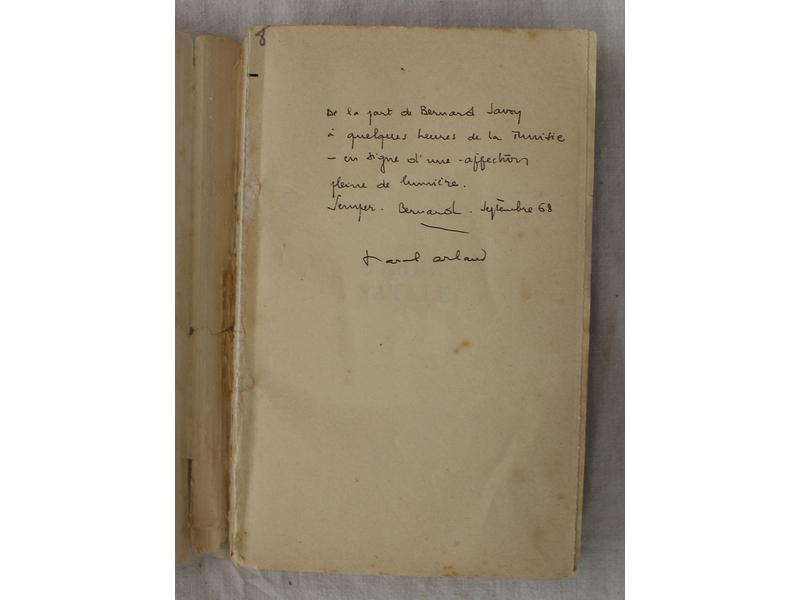 8
De la part de Bernard Savoy
à quelques heures de la Tunisie
– en signe d'une affection
pleine de lumière.
Semper. Bernard. Septembre 68
arland